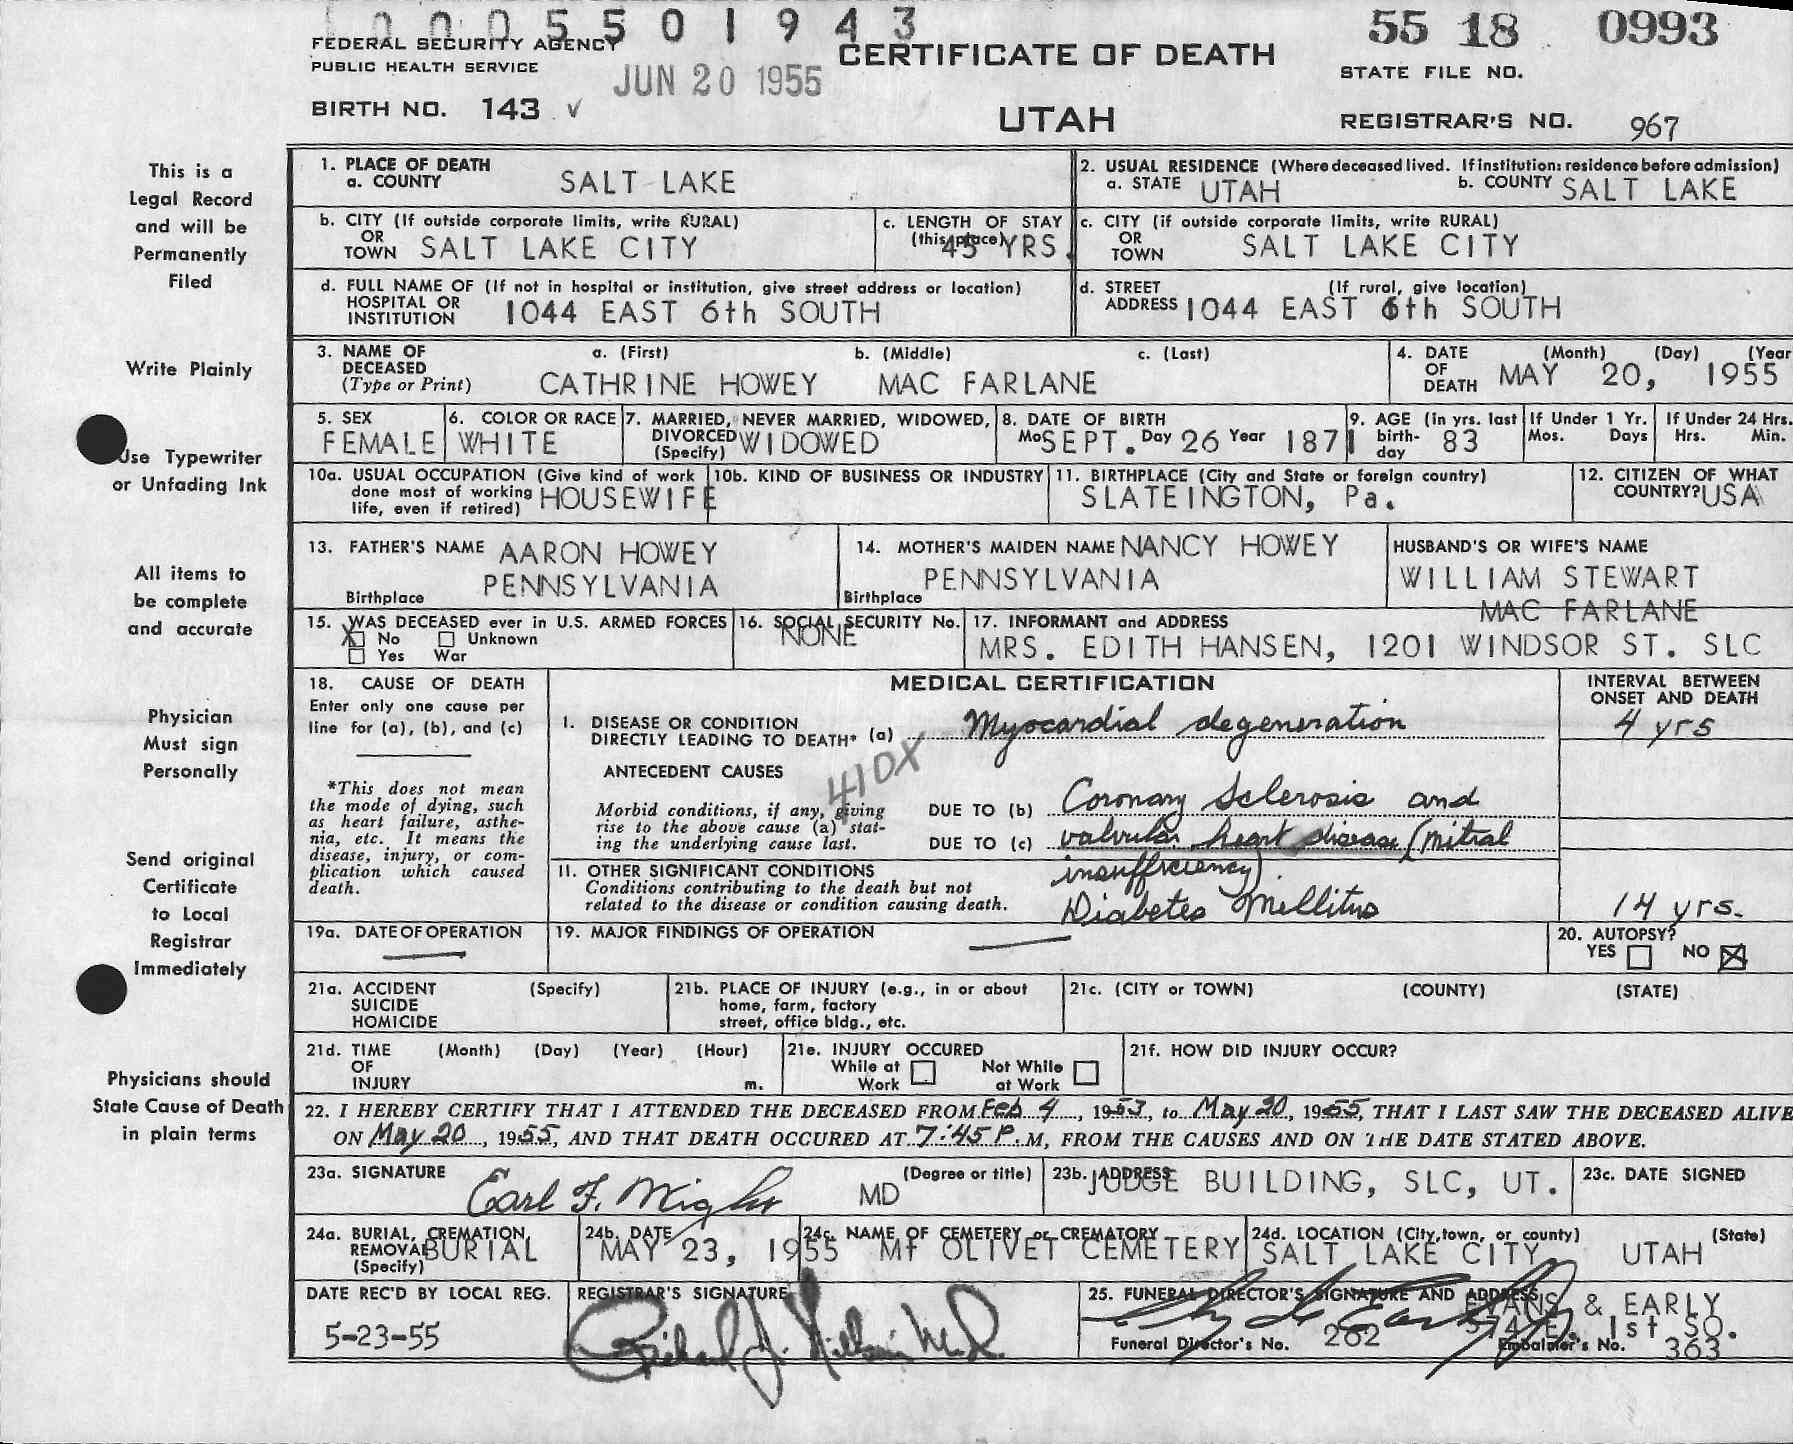 1000 5 5 0 1 9 4 3
55 18 0993
FEDERAL SECURITY AGENCY
PUBLIC HEALTH SERVICE
CERTIFICATE OF DEATH
STATE FILE NO.
JUN 20 1955
BIRTH NO. 143 v
UTAH
REGISTRAR'S NO. 967
This is a
Legal Record
and will be
Permanently
Filed
Write Plainly
Use Typewriter
or Unfading Ink
All items to
be complete
and accurate
Physician
Must sign
Personally
Send original
Certificate
to Local
Registrar
Immediately
Physicians should
State Cause of Death
in plain terms
1. PLACE OF DEATH
a. COUNTY SALT LAKE
2. USUAL RESIDENCE (Where deceased lived. If institution: residence before admission)
a. STATE UTAH b. COUNTY SALT LAKE
b. CITY (If outside corporate limits, write RURAL)
OR
TOWN SALT LAKE CITY
c. LENGTH OF STAY
(this place) 45 YRS.
c. CITY (if outside corporate limits, write RURAL)
OR
TOWN SALT LAKE CITY
d. FULL NAME OF (If not in hospital or institution, give street address or location)
HOSPITAL OR
INSTITUTION 1044 EAST 6th SOUTH
d. STREET (If rural, give location)
ADDRESS 1044 EAST 6th SOUTH
3. NAME OF a. (First) b. (Middle) c. (Last)
DECEASED
(Type or Print) CATHRINE HOWEY MAC FARLANE
4. DATE (Month) (Day) (Year
OF
DEATH MAY 20, 1955
5. SEX
FEMALE
6. COLOR OR RACE
WHITE
7. MARRIED, NEVER MARRIED, WIDOWED,
DIVORCED WIDOWED
(Specify)
8. DATE OF BIRTH
Mo SEPT. Day 26 Year 1871
9. AGE (in yrs. last
birth-
day 83
If Under 1 Yr.
Mos. Days
If Under 24 Hrs.
Hrs. Min.
10a. USUAL OCCUPATION (Give kind of work
done most of working
life, even if retired) HOUSEWIFE
10b. KIND OF BUSINESS OR INDUSTRY
11. BIRTHPLACE (City and State or foreign country)
SLATEINGTON, Pa.
12. CITIZEN OF WHAT
COUNTRY? USA
13. FATHER'S NAME AARON HOWEY
PENNSYLVANIA
Birthplace
14. MOTHER'S MAIDEN NAME NANCY HOWEY
PENNSYLVANIA
Birthplace
HUSBAND'S OR WIFE'S NAME
WILLIAM STEWART
MAC FARLANE
15. WAS DECEASED ever in U.S. ARMED FORCES
X No Unknown
Yes War
16. SOCIAL SECURITY No.
NONE
17. INFORMANT and ADDRESS
MRS. EDITH HANSEN, 1201 WINDSOR ST. SLC
18. CAUSE OF DEATH
Enter only one cause per
line for (a), (b), and (c)
*This does not mean
the mode of dying, such
as heart failure, asthe-
nia, etc. It means the
disease, injury, or com-
plication which caused
death.
MEDICAL CERTIFICATION
INTERVAL BETWEEN
ONSET AND DEATH
I. DISEASE OR CONDITION
DIRECTLY LEADING TO DEATH* (a) Myocardial degeneration
4 yrs
ANTECEDENT CAUSES
410X
Morbid conditions, if any, giving
rise to the above cause (a) stat-
ing the underlying cause last.
DUE TO (b) Coronary Sclerosis and
DUE TO (c) valvular heart disease (mitral
insufficiency)
11. OTHER SIGNIFICANT CONDITIONS
Conditions contributing to the death but not
related to the disease or condition causing death.
Diabetes Mellitus
14 yrs.
19a. DATE OF OPERATION
19. MAJOR FINDINGS OF OPERATION
20. AUTOPSY?
YES NO X
21a. ACCIDENT (Specify)
SUICIDE
HOMICIDE
21b. PLACE OF INJURY (e.g., in or about
home, farm, factory
street, office bldg., etc.
21c. (CITY or TOWN) (COUNTY) (STATE)
21d. TIME (Month) (Day) (Year) (Hour)
OF
INJURY m.
21e. INJURY OCCURED
While at Not While
Work at Work
21f. HOW DID INJURY OCCUR?
22. I HEREBY CERTIFY THAT I ATTENDED THE DECEASED FROM Feb 4, 1953, to May 20, 1955, THAT I LAST SAW THE DECEASED ALIVE
ON May 20, 1955, AND THAT DEATH OCCURED AT 7:45 P.M, FROM THE CAUSES AND ON THE DATE STATED ABOVE.
23a. SIGNATURE (Degree or title)
Earl F. Wight MD
23b. ADDRESS
JUDGE BUILDING, SLC, UT.
23c. DATE SIGNED
24a. BURIAL, CREMATION,
REMOVAL BURIAL
(Specify)
24b. DATE
MAY 23, 1955
24c. NAME OF CEMETERY or CREMATORY
Mt OLIVET CEMETERY
24d. LOCATION (City, town, or county) (State)
SALT LAKE CITY UTAH
DATE REC'D BY LOCAL REG.
5-23-55
REGISTRAR'S SIGNATURE
Richard
25. FUNERAL DIRECTOR'S SIGNATURE AND ADDRESS
EVANS & EARLY
574 E. 1st SO.
Funeral Director's No. 262
Embalmer's No. 363